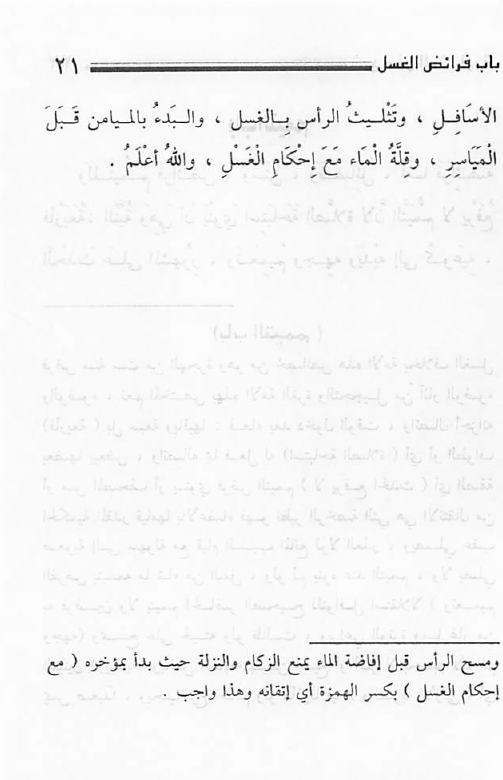 باب فرائض الغسل ٢١
الأسَافِلِ ، وتَثْلـيثُ الرأس بِـالغسل ، والـبَدءُ بالمـيامن قَـبَلَ
الْمَيَاسِرِ ، وقِلَّةُ الْمَاء مَعَ إِحْكَامِ الْغَسْلِ ، واللهُ أعْلَمُ .
ومسح الرأس قبل إفاضة الماء يمنع الزكام والنزلة حيث بدأ بمؤخره ( مع
إحكام الغسل ) بكسر الهمزة أي إتقانه وهذا واجب .